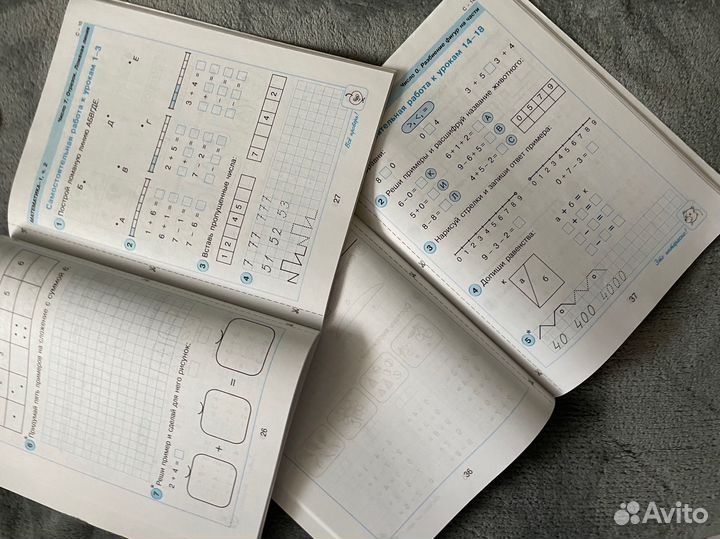 МАТЕМАТИКА: 1, ч. 2
С - 10
Число 7. Отрезок. Ломаная линия
Самостоятельная работа к урокам 1-3
1 Построй ломаную линию АБВГДЕ.
А Б В Г Д Е
2
1 + 6 = 2 + 5 3 + 4 =
6 + 1 =
7 − 1 =
7 − 6 = 7 − 2 =
3 Вставь пропущенные числа:
1 2 4 5
7 4 2
4 7 77 777
51 52 53
Все проверь!
27
5 6
6* Придумай пять примеров на сложение с суммой 6.
7* Реши пример и сделай для него рисунок:
2 + 4 =
+ =
26
С - 1
Число 0. Разбиение фигур на части
тельная работа к урокам 14-18
>, <, =
8 0 0 4 3 + 5 3 + 4
2 Реши примеры и расшифруй название животного:
6 − 0 = К 6 + 1 + 2 = А
5 · 0 = И 9 − 6 − 3 = В
8 − 8 = Л 4 + 5 − 2 = С
0 5 7 9
3 Нарисуй стрелки и запиши ответ примера:
0 1 2 3 4 5 6 7 8 9 0 1 2 3 4 5 6 7 8 9
9 − 3 − 2 = 0 + 7 − 3 =
4 Допиши равенства:
к а б
а + б = к
+ =
− =
− =
5* 40 400 4000
37
36
Avito